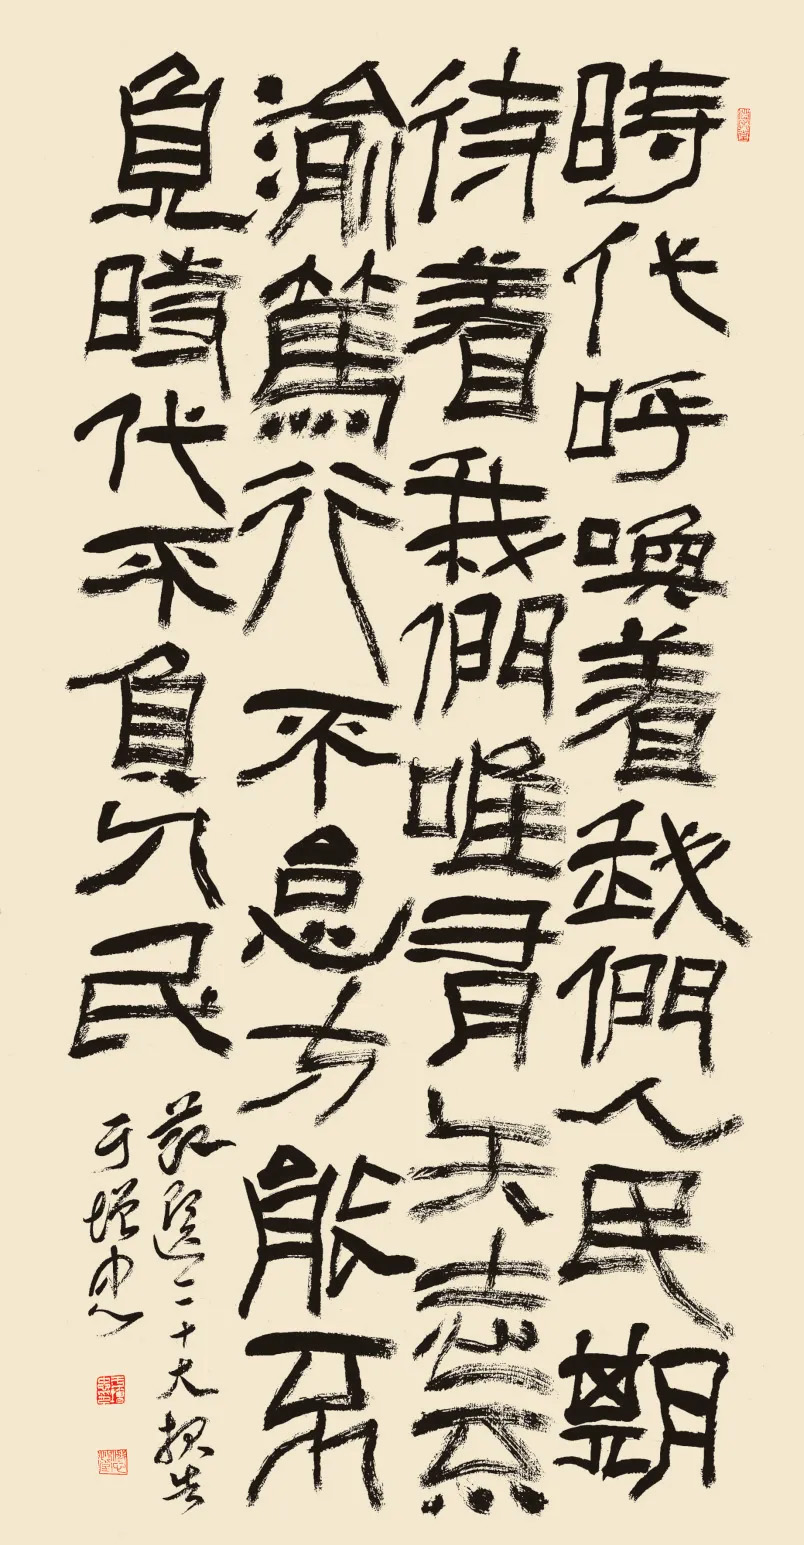 時代呼喚着我們人民期
待着我們唯有矢志不
渝篤行不息方能不
負時代不負人民
節選二十大報告
于增忠